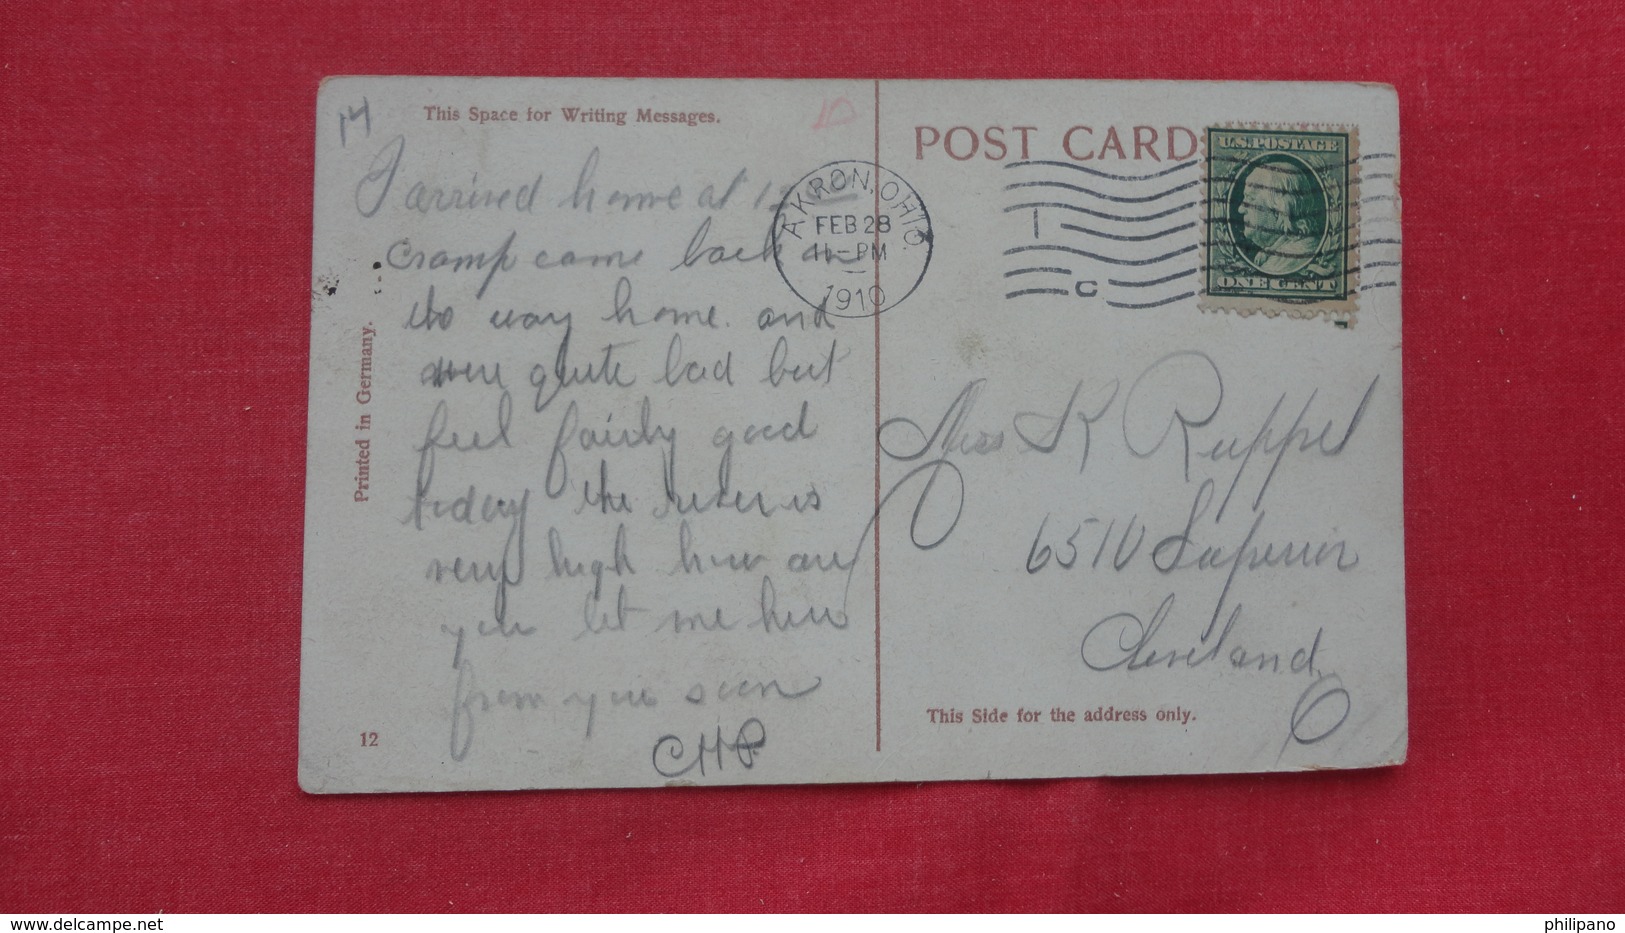 14
This Space for Writing Messages.
10
I arrived home at
cramp came back on
the way home. and
were quite bad but
feel fairly good
today the river is
very high how are
you let me hear
from you soon
CHP.
Printed in Germany.
12
POST CARD
AKRON, OHIO.
FEB 28
11-PM
1910
1
C
U.S. POSTAGE
ONE CENT
Miss K Ruppel
6510 Superior
Cleveland,
O
This Side for the address only.
delcampe.net
philipano